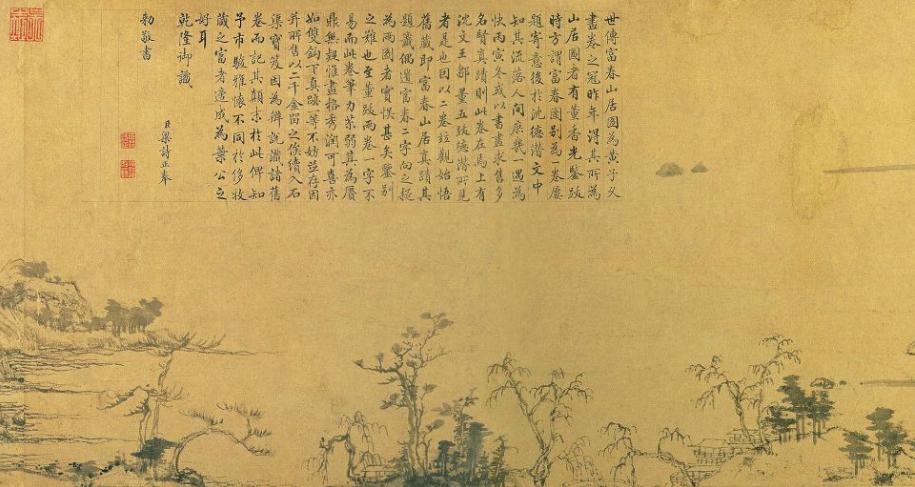 世傳富春山居圖為黃子久
畫卷之冠昨年得其所為
山居圖者有董香光鑒跋
時方謂富春圖別為一卷屢
題寄意後於沈德潛文中
知其流落人間庶幾一遇為
快丙寅冬或以書畫求售多
名賢真蹟則此卷在焉上有
沈文王鄒董五跋德潛所見
者是也因以二卷並觀始悟
舊藏即富春山居真蹟其
題籤偶遺富春二字向之疑
為兩圖者實悞甚矣鑒別
之難也至董跋兩卷一字不
易而此卷筆力苶弱其為贋
鼎無疑惟畫格秀潤可喜亦
如雙鉤下真蹟一等不妨並存因
并所售以二千金留之俟續入石
渠寶笈因為辨說識諸舊
卷而記其顛末於此俾知
予市駿雅懷不同於侈收
藏之富者適成為葉公之
好耳
乾隆御識
臣梁詩正奉
勅敬書